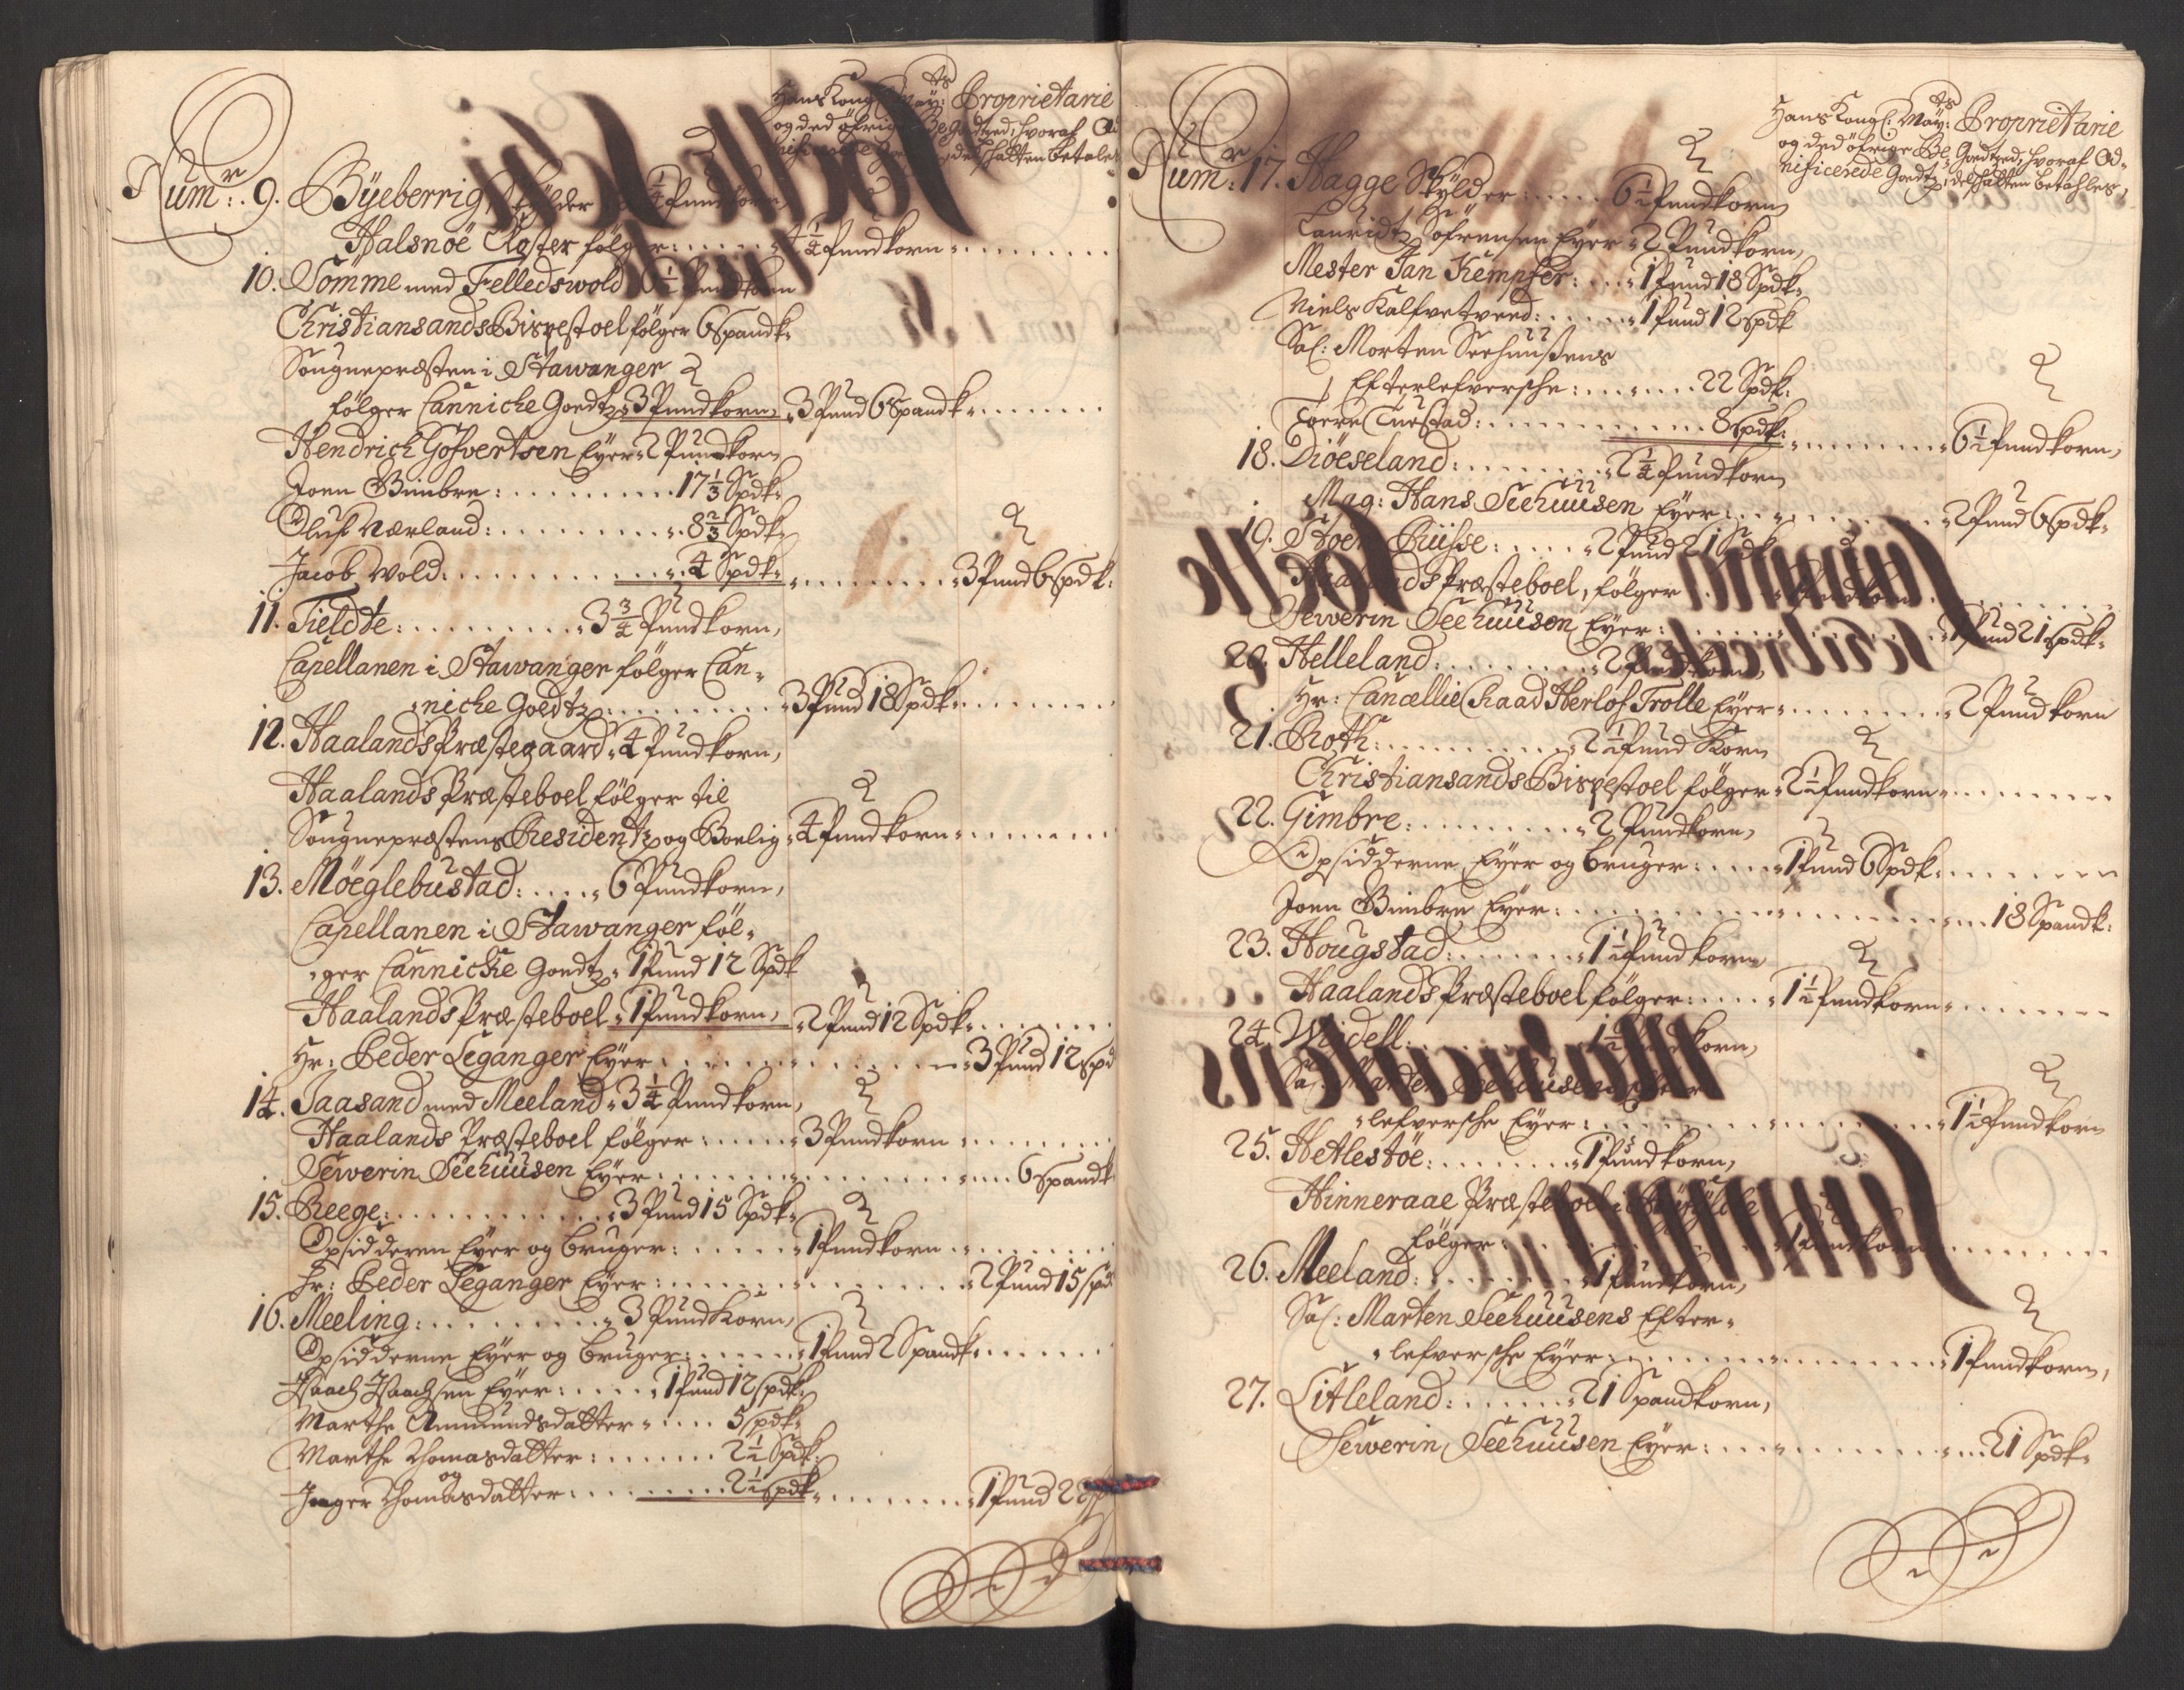 Hans Kongl: Maÿ:ts Proprietarie
og ded öfrige Be Goedtzed, hvoraf
delshalten betales
Num:r 9. Bÿeberrig skÿlder 4 1/4 Pundkorn
Halsnöe Closter følger: . . . . . 4 1/4 Pundkorn
10. Sömme med Felledswold 6 1/2 Pundkorn
Christiansands Bispestoel følger 6 Spandk:
Sougnepræsten i Stawanger
følger Cannicke Goedtz 3 Pundkorn, 3 Pund 6 Spandk:
Hendrich Gofvertsen Eÿer 2 Pundkorn
Joen Gimbre: . . . . . 17 1/3 Spdk:
Oluf Nærland: . . . . . 8 2/3 Spdk:
Jacob Wold: . . . . . 4 Spdk: . . . . . 3 Pund 6 Spdk:
11. Tieldte: . . . . . 3 3/4 Pundkorn,
Capellanen i Stawanger følger Can-
niche Goedtz: . . . . . 3 Pund 18 Spdk:
12. Haalands Præstegaard 4 Pundkorn,
Haalands Præsteboel følger til
Sougnepræstens Residentz og Boelig 4 Pundkorn
13. Möeglebüstad: . . . . . 6 Pundkorn,
Capellanen i Stawanger föl-
ger Cannicke Goedtz 1 Pund 12 Spdk
Haalands Præsteboel 1 Pundkorn, 2 Pund 12 Spdk:
Hr: Peder Leganger Eÿer . . . . . 3 Pund 12 Spd
14. Jaasand med Meeland 3 1/4 Pundkorn,
Haalands Præsteboel følger: . . . . . 3 Pundkorn
Sewerin Seehuusen Eÿer: . . . . . 6 Spandk
15. Reege: . . . . . 3 Pund 15 Spdk:
Opsidderen Eÿer og bruger: . . . . . 1 Pundkorn
Hr: Peder Leganger Eÿer: . . . . . 2 Pund 15 Spd
16. Meeling: . . . . . 3 Pund Korn,
Opsidderne Eÿer og bruger: . . . . . 1 Pund 2 Spandk:
Isaach Isaachsen Eÿer: . . . . . 1 Pund 12 Spdk:
Marthe Ammundsdatter . . . . . 5 Spdk:
Marthe Thomasdatter: . . . . . 2 1/2 Spdk:
og
Inger Thomasdatter: . . . . . 2 1/2 Spdk: . . . . . 1 Pund 22
Hans Kongl: Maÿ:ts Proprietarie
og ded öfrige Be Goedtzed, hvoraf Od-
nificerede Goedtz, delshalten betahles,
Num:r 17. Hagge Skÿlder: . . . . . 6 1/2 Pundkorn
Lauridtz Söfrensen Eÿer 2 Pundkorn,
Mester Jan Kempfer: . . . . . 1 Pund 18 Spdk:
Niels Kalfvetved: . . . . . 1 Pund 12 Spdk
Sal: Morten Seehuusens
Efterlefversche: . . . . . 22 Spdk:
Torre Tuestad: . . . . . 8 Spdk: . . . . . 6 1/2 Pundkorn,
18. Diöeseland: . . . . . 2 1/4 Pundkorn
Mag: Hans Seehuusen Eÿer: . . . . . 2 Pund 6 Spdk:
19. Stoer Ruisse: . . . . . 2 Pund 21 Spdk
Haalands Præsteboel, følger . . . . . Pundkorn
Sewerin Seehuusen Eÿer: . . . . . 1 Pund 21 Spdk:
20. Helleland: . . . . . 2 Pundkorn,
Hr: Cancellie Raad Herlof Trolle Eÿer . . . . . 2 Pundkorn
21. Roth: . . . . . 2 1/2 Pund Korn
Christiansands Bispestoel følger 2 1/2 Pundkorn
22. Gimbre: . . . . . 2 Pundkorn,
Opsidderne Eÿer og bruger: . . . . . 1 Pund 6 Spdk:
Joen Gimbre Eÿer: . . . . . 18 Spandk:
23. Hougstad: . . . . . 1 1/2 Pundkorn
Haalands Præsteboel følger: . . . . . 1 1/2 Pundkorn
24. Wigdell: . . . . . 1 1/2 Pundkorn,
Sal: Marten Seehuusens Efter
lefversche Eÿer: . . . . . 1 1/2 Pundkorn
25. Hetlestöe: . . . . . 1 Pundkorn,
Hinneraae Præsteboel i Rÿefÿlcke
følger: . . . . . 1 Pundkorn
26. Meeland: . . . . . 1 Pundkorn,
Sal: Marten Seehuusens Efter-
lefversche Eÿer: . . . . . 1 Pundkorn,
27. Litleland: . . . . . 21 Spandkorn,
Sewerin Seehuusen Eÿer: . . . . . 21 Spdk: